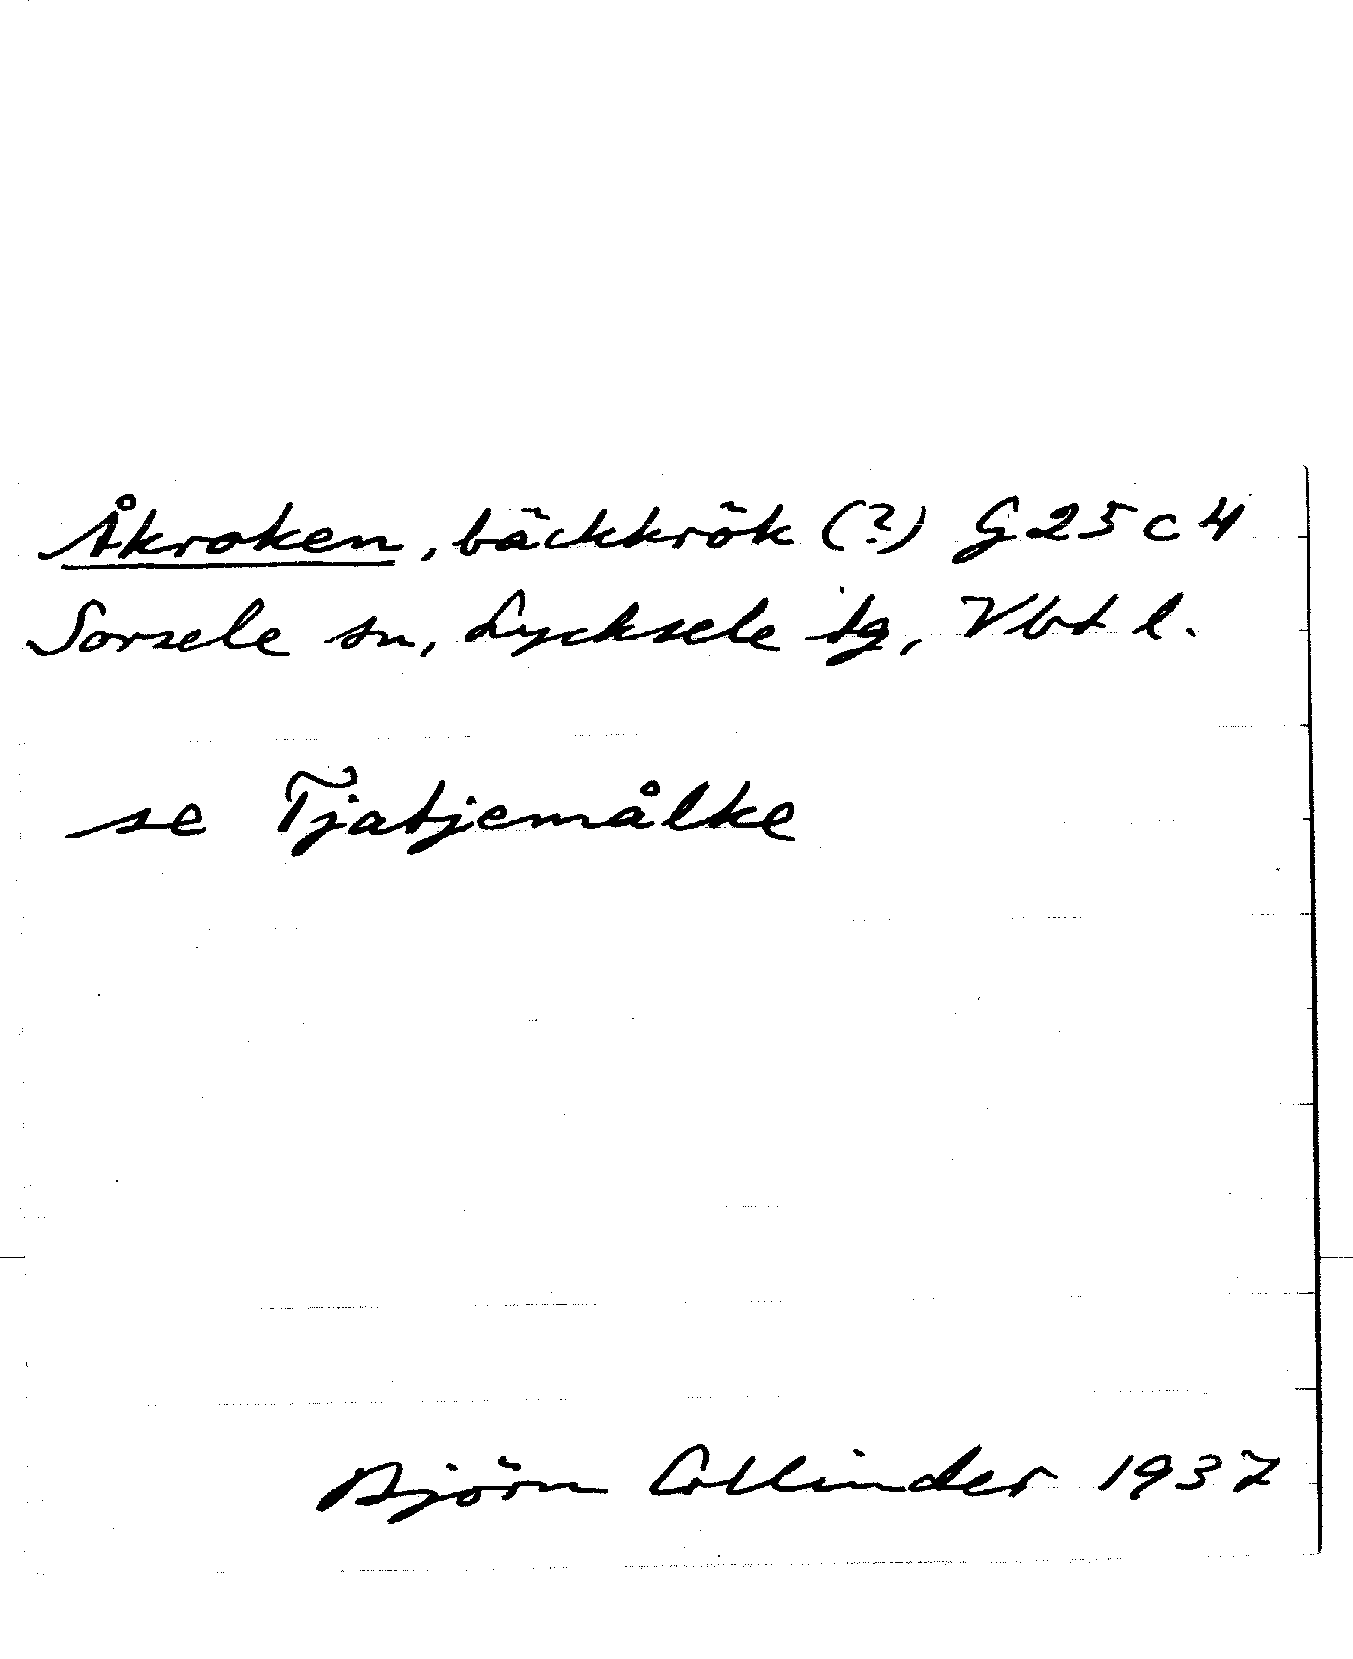 Åkroken, bäckkrök (?) G 25 c 4
Sorsele sn, Lycksele tg, Vbt l.
se Tjatjemålke
Björn Collinder 1937